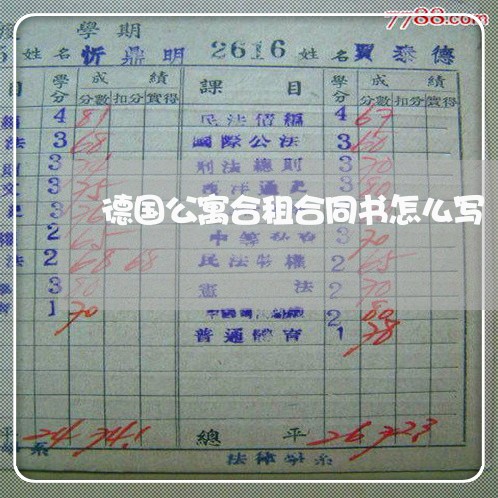 7788.com
學期
姓名 忻鼎明 2616 姓名 賈泰德
目 學分 成績 課目 學分 成績
分數 扣分 實得 分數 扣分 實得
4 81 民法債編 4 67
法 3 68 國際公法 3 60
3 刑法總則 3 70
3 75 3 80
德国公寓合租合同书怎么写
2 3 70
法 2 68 68 民法物權 2 65
3 80 憲法 2 70
1 70 2 80
普通體育 1 78
平 24 74.1 總平 26 72.3
系 法律學系